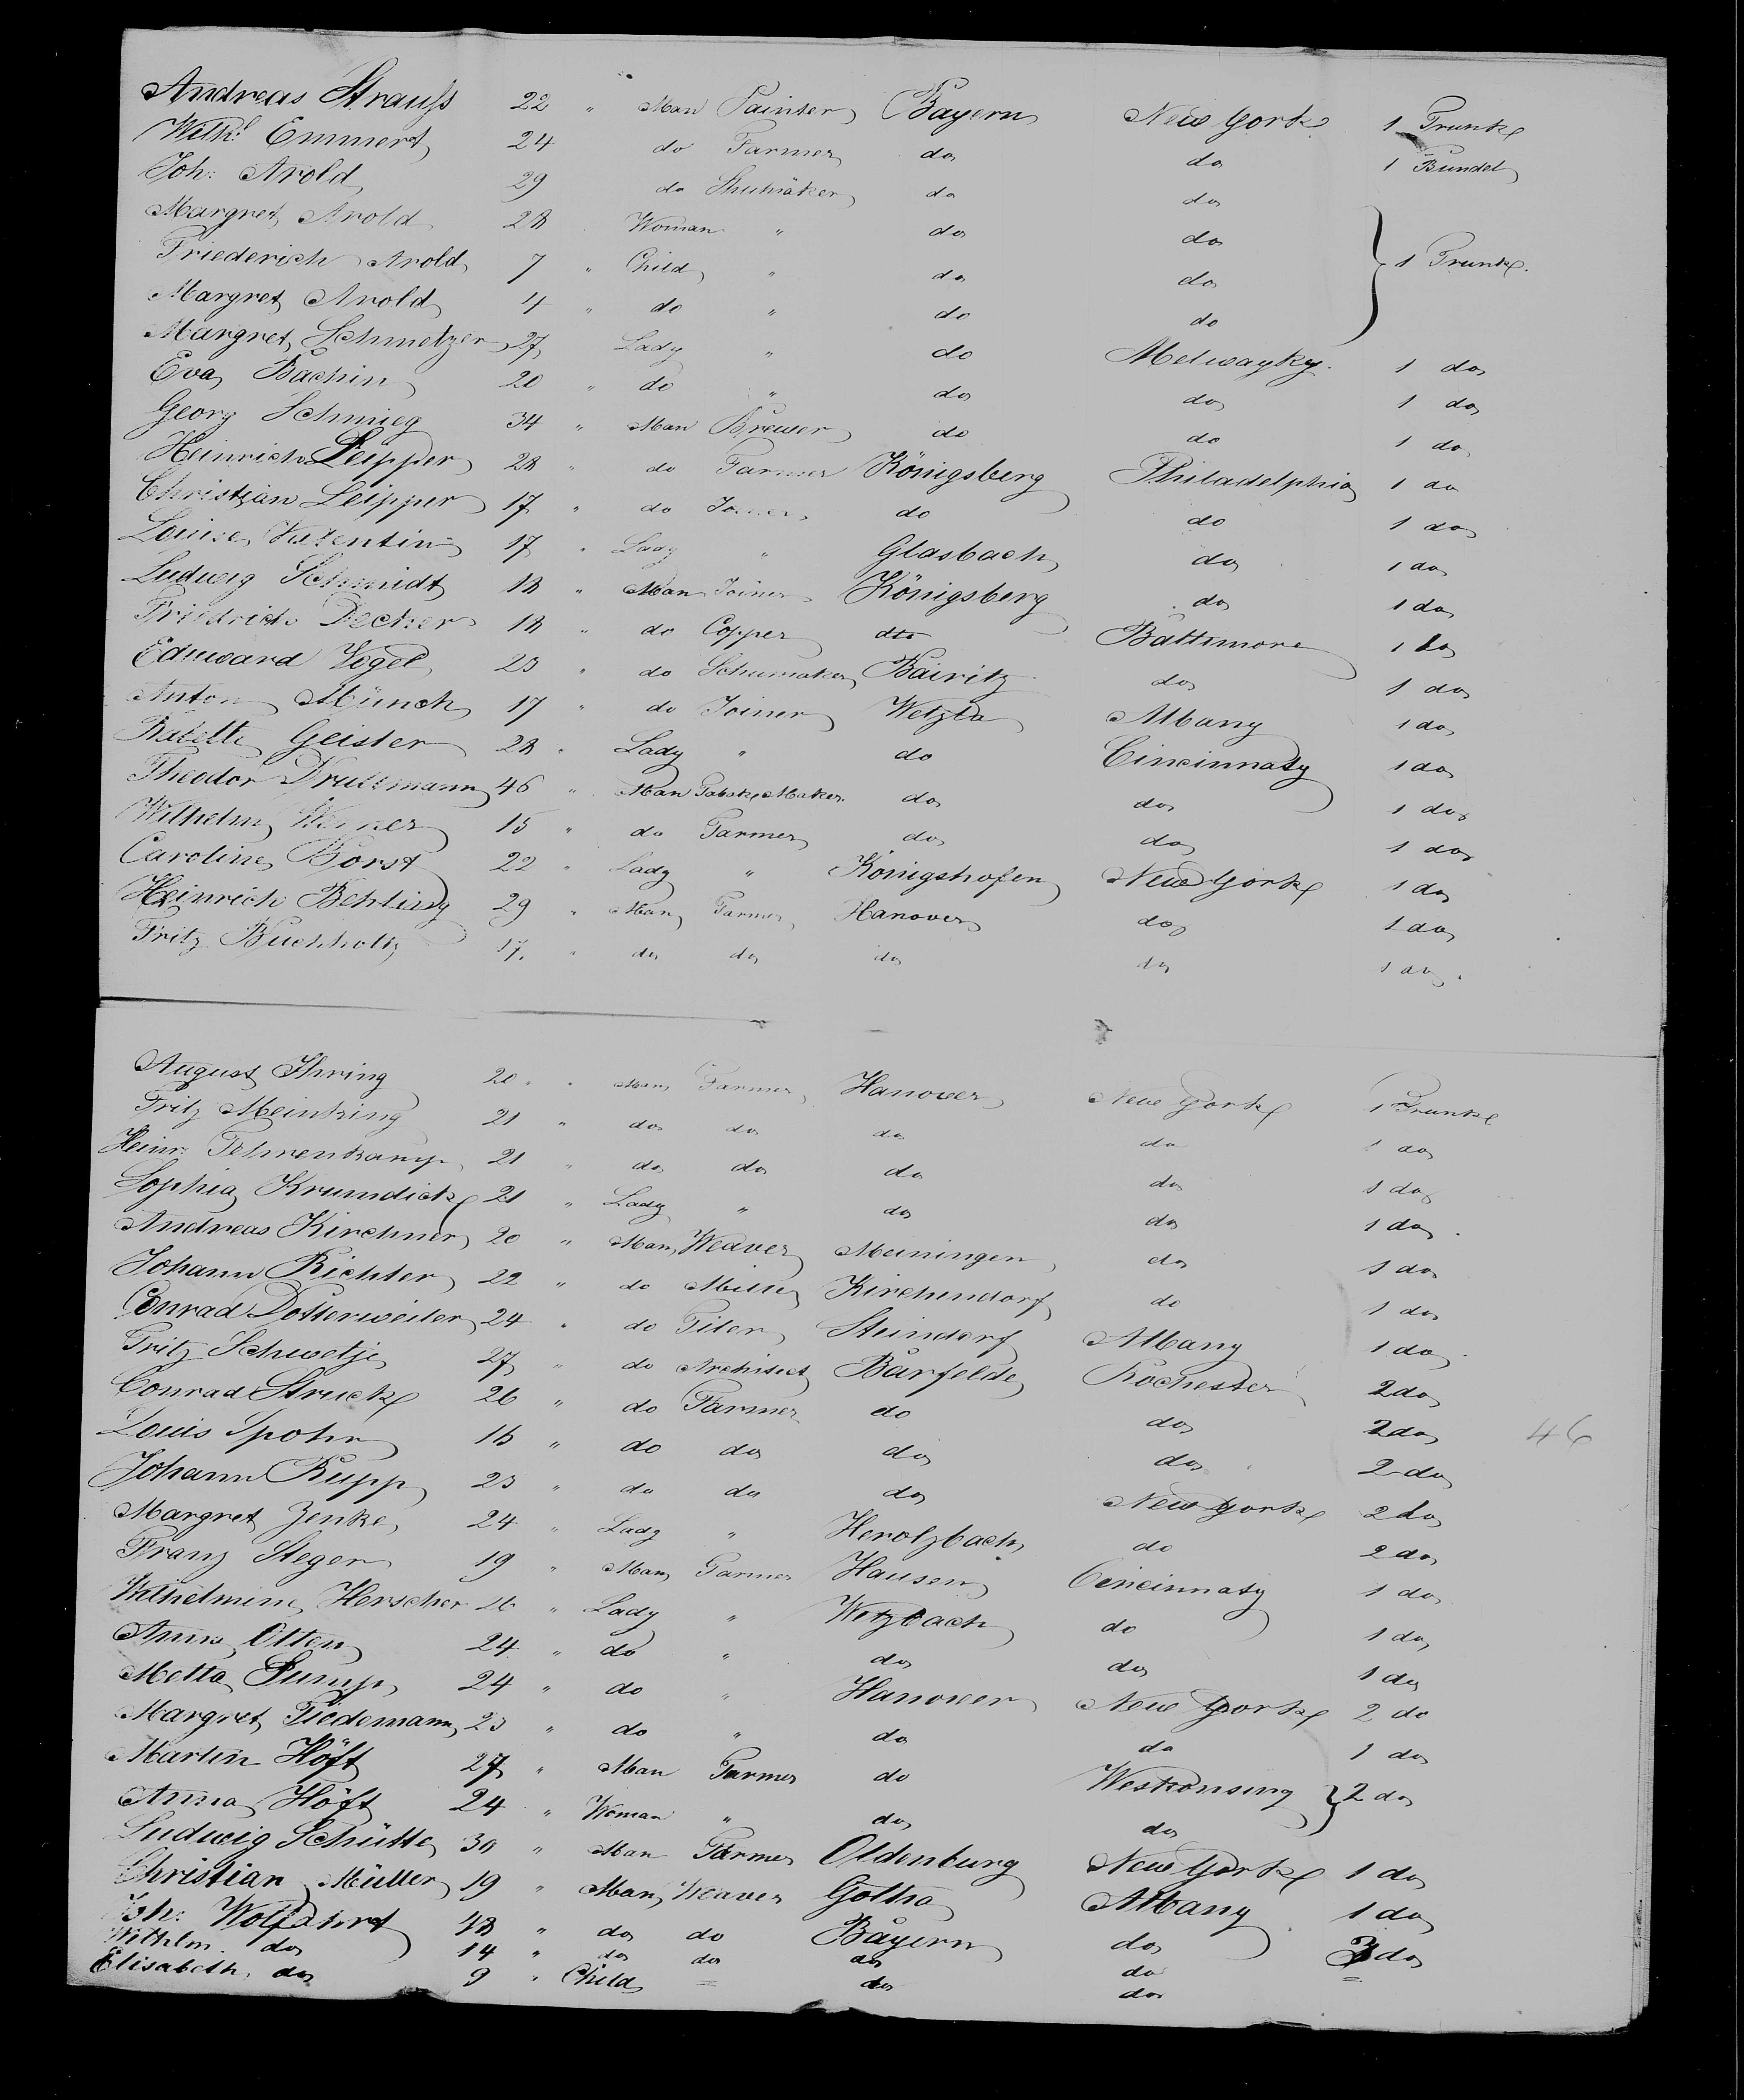 Andreas Strauß 22 " Man Painter Bayern New York 1 Trunk
Wilh: Emmert 24 do Farmer do do 1 Bundel
Joh: Arold 29 do Shuhmäker do do
Margret Arold 28 Woman " do do
Friederich Arold 7 " Child " do do } 1 Trunk.
Margret Arold 4 " do " do do
Margret Schmetzer 27 Lady " do Melwayky. 1 do
Eva Bachin 20 " do " do do 1 do
Georg Schmieg 34 " Man Brewer do do 1 do
Heinrich Leipper 28 " do Farmer Königsberg Philadelphia 1 do
Christian Leipper 17 " do Joiner do do 1 do
Louise Valentin 17 " Lady " Glasbach do 1 do
Ludwig Schmidt 18 " Man Joiner Königsberg do 1 do
Friedrich Decker 18 " do Copper dto Baltimore 1 do
Eduward Vogel 23 " do Schumaker Bairitz do 1 do
Anton Münch 17 " do Joiner Wetzla Albany 1 do
Babette Geisler 28 " Lady " do Cincinnaty 1 do
Theodor 46 " Man Maker do do 1 do
Wilhelm 15 " do Farmer do do 1 do
Caroline Borst 22 " Lady " Königshofen New York 1 do
Heinrich Behling 29 " Man Farmer Hanover do 1 do
Fritz Buchholtz 17. " do do do do 1 do.
August Ihring 20 " " Man Farmer Hanover New York 1 Trunk
Fritz Meinking 21 " do do do do 1 do
Heinr: 21 " do do do do 1 do
Sophia Krumdick 21 " Lady " do do 1 do.
Andreas Kirchner 20 " Man Weaver Meiningen do 1 do
Johann Richter 22 " do Miller Kirchendorf do 1 do
Conrad Dotterweiler 24 " do Tiler Steindorf Albany 1 do
Fritz Schwetje 27 " do Architect Barfelde Rochester 2 do
Conrad Struck 26 " do Farmer do do 2 do
46
Louis Spohr 16 " do do do do 2 do
Johann Rupp 23 " do do do New York 2 do
Margret Zenke 24 " Lady " Herolzbach do 2 do
Franz Steger 19 " Man Farmer Hausen Cincinnaty 1 do
Wilhelmine Herscher 26 " Lady " Witzbach do 1 do
Anna Otten 24 " do " do do 1 do
Metta Pump 24 " do " Hanover New York 2 do
Margret Tiedemann 23 " do " do do 1 do
Martin Höft 27 " Man Farmer do Weskonsing } 2 do
Anna Höft 24 " Woman " do do
Ludwig Schütte 30 " Man Farmer Oldenburg New York 1 do
Christian Müller 19 " Man Weaver Gotha Albany 1 do
Joh: Wolfahrt 48 " do do Bayern do 3 do
Wilhlm. do 14 " do do do do =
Elisabeth. do 9 " Child = do do